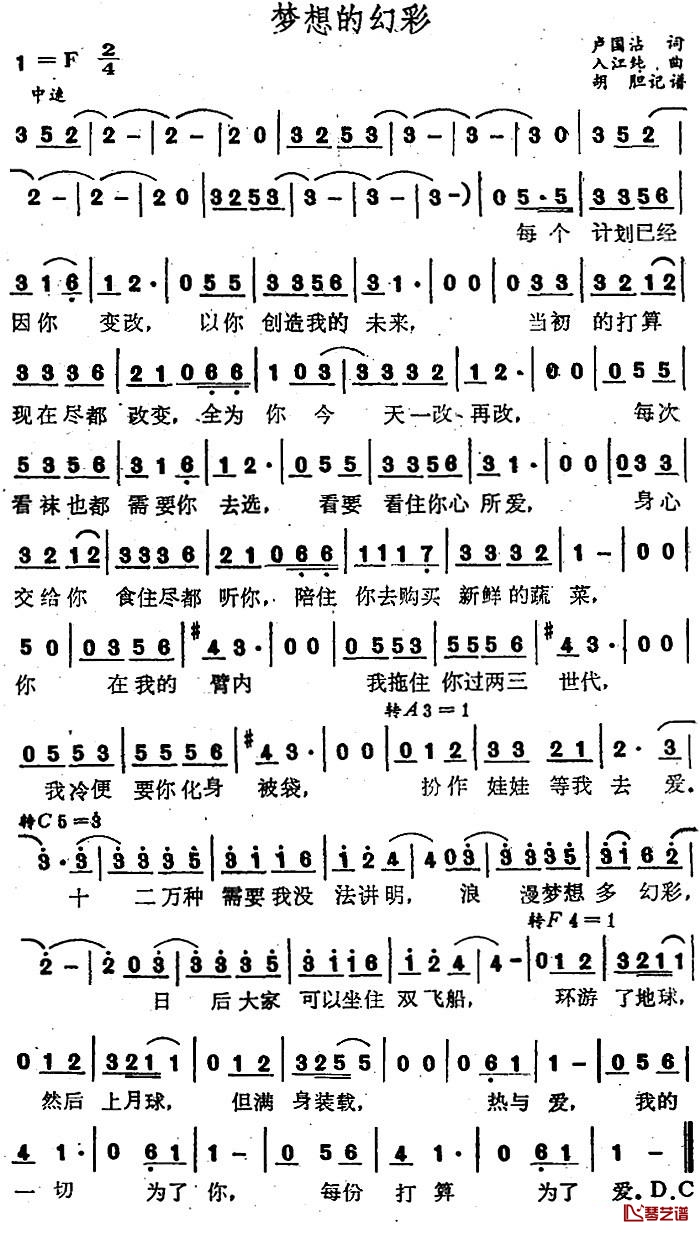 梦想的幻彩
1=F 2/4
卢国沾 词
入江纯 曲
胡 胆记谱
中速
3 5 2 | 2 - | 2 - | 2 0 | 3 2 5 3 | 3 - | 3 - | 3 0 | 3 5 2 |
2 - | 2 - | 2 0 | 3 2 5 3 | 3 - | 3 - | 3 -) | 0 5 · 5 | 3 3 5 6 |
每个 计划已经
3 1 6 | 1 2 · | 0 5 5 | 3 3 5 6 | 3 1 · | 0 0 | 0 3 3 | 3 2 1 2 |
因你 变改, 以你 创造我的 未来, 当初 的打算
3 3 3 6 | 2 1 0 6 6 | 1 0 3 | 3 3 3 2 | 1 2 · | 0 0 | 0 5 5 |
现在尽都 改变, 全为 你 今 天一改再改, 每次
5 3 5 6 | 3 1 6 | 1 2 · | 0 5 5 | 3 3 5 6 | 3 1 · | 0 0 | 0 3 3 |
看袜也都 需要你 去选, 看要 看住你心 所爱, 身心
3 2 1 2 | 3 3 3 6 | 2 1 0 6 6 | 1 1 1 7 | 3 3 3 2 | 1 - | 0 0 |
交给你 食住尽都 听你, 陪住 你去购买 新鲜的蔬 菜,
5 0 | 0 3 5 6 | #4 3 · | 0 0 | 0 5 5 3 | 5 5 5 6 | #4 3 · | 0 0 |
你 在我的 臂内 我拖住 你过两三 世代,
转A 3=1
0 5 5 3 | 5 5 5 6 | #4 3 · | 0 0 | 0 1 2 | 3 3 2 1 | 2 · 3 |
我冷便 要你化身 被袋, 扮作 娃娃 等我 去 爱。
转C 5=3
3 · 3 | 3 3 3 5 | 3 1 1 6 | 1 2 4 | 4 0 3 | 3 3 3 5 | 3 1 6 2 |
十 二万种 需要我没 法讲明, 浪 漫梦想 多 幻彩,
转F 4=1
2 - | 2 0 3 | 3 3 3 5 | 3 1 1 6 | 1 2 4 | 4 - | 0 1 2 | 3 2 1 1 |
日 后大家 可以坐住 双飞船, 环游 了地球,
0 1 2 | 3 2 1 1 | 0 1 2 | 3 2 5 5 | 0 0 | 0 6 1 | 1 - | 0 5 6 |
然后 上月球, 但满 身装载, 热与 爱, 我的
4 1 · | 0 6 1 | 1 - | 0 5 6 | 4 1 · | 0 6 1 | 1 - ‖
一切 为了 你, 每份 打算 为了 爱。D.C
琴艺谱